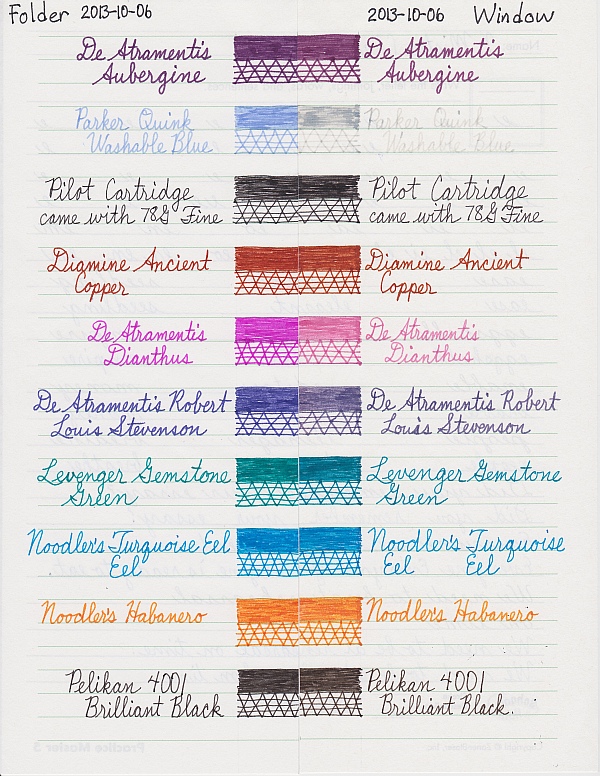 Folder 2013-10-06 2013-10-06 Window
De Atramentis De Atramentis
Aubergine Aubergine
Parker Quink Parker Quink
Washable Blue Washable Blue
Pilot Cartridge Pilot Cartridge
came with 78G Fine came with 78G Fine
Diamine Ancient Diamine Ancient
Copper Copper
De Atramentis De Atramentis
Dianthus Dianthus
De Atramentis Robert De Atramentis Robert
Louis Stevenson Louis Stevenson
Levenger Gemstone Levenger Gemstone
Green Green
Noodler's Turquoise Eel Noodler's Turquoise
Eel Eel Eel
Noodler's Habanero Noodler's Habanero
Pelikan 4001 Pelikan 4001
Brilliant Black Brilliant Black.
Practice Master 3